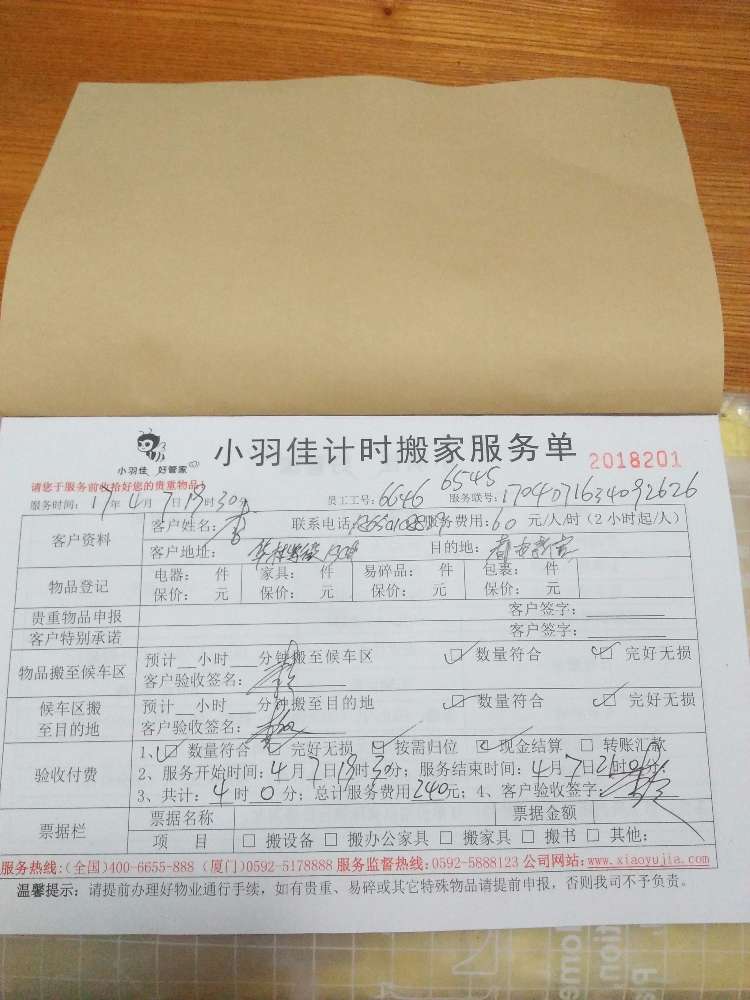 小羽佳计时搬家服务单
小羽佳 好管家
2018201
请您于服务前收拾好您的贵重物品
6545
服务时间：17年4月7日19时30分 员工工号：6646 服务联号：1704071634092626
客户资料 客户姓名：李 联系电话： 服务费用：60元/人/时（2小时起/人）
客户地址： 目的地：
物品登记 电器： 件 家具： 件 易碎品： 件 包裹： 件
保价： 元 保价： 元 保价： 元 保价： 元
贵重物品申报 客户签字：
客户特别承诺 客户签字：
物品搬至候车区 预计__小时__分钟搬至候车区 ☑ 数量符合 ☑ 完好无损
客户验收签名：
候车区搬至目的地 预计__小时__分钟搬至目的地 ☑ 数量符合 ☑ 完好无损
客户验收签名：
验收付费 1、☑ 数量符合 ☑ 完好无损 ☑ 按需归位 ☑ 现金结算 □ 转账汇款
2、服务开始时间：4月7日19时30分；服务结束时间：4月7日21时 分；
3、共计：4时0分；总计服务费用240元；4、客户验收签字：
票据栏 票据名称 票据金额
项 目 □ 搬设备 □ 搬办公家具 □ 搬家具 □ 搬书 □ 其他：
服务热线：(全国)400-6655-888 (厦门)0592-5178888 服务监督热线：0592-5888123 公司网站：www.xiaoyujia.com
温馨提示：请提前办理好物业通行手续，如有贵重、易碎或其它特殊物品请提前申报，否则我司不予负责。